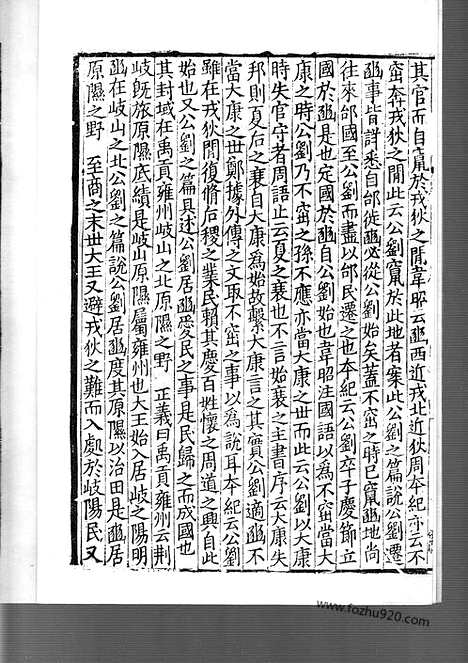 其官而自竄於戎狄之閒韋昭云豳西近戎北近狄周本紀亦云不
窋奔戎狄之閒此云公劉竄於此地者案此公劉之篇說公劉遷
豳事皆詳悉自邰徙豳必從公劉始矣蓋不窋之時已竄豳地尚
往來邰國至公劉而盡以邰民遷之也本紀云公劉卒子慶節立
國於豳是也定國於豳自公劉始也韋昭注國語以為不窋當大
康之時公劉乃不窋之孫不應亦當大康之世而云公劉以大康
時失官守者周語止云夏之衰也不言始衰之主書序云大康失
邦則夏后之衰自大康為始故繫大康言之其實公劉適豳不
當大康之世鄭據外傳之文取不窋之事以為說耳本紀云公劉
雖在戎狄閒復脩后稷之業民賴其慶百姓懷之周道之興自此
始也又公劉之篇具述公劉居豳愛民之事是民歸之而成國也
其封域在禹貢雍州岐山之北原隰之野 正義曰禹貢雍州云荆
岐既旅原隰厎績是岐山原隰屬雍州也大王始入居岐之陽明
豳在岐山之北公劉之篇說公劉居豳度其原隰以治田是豳居
原隰之野 至商之末世大王又避戎狄之難而入處於岐陽民又
www.fozhu920.com